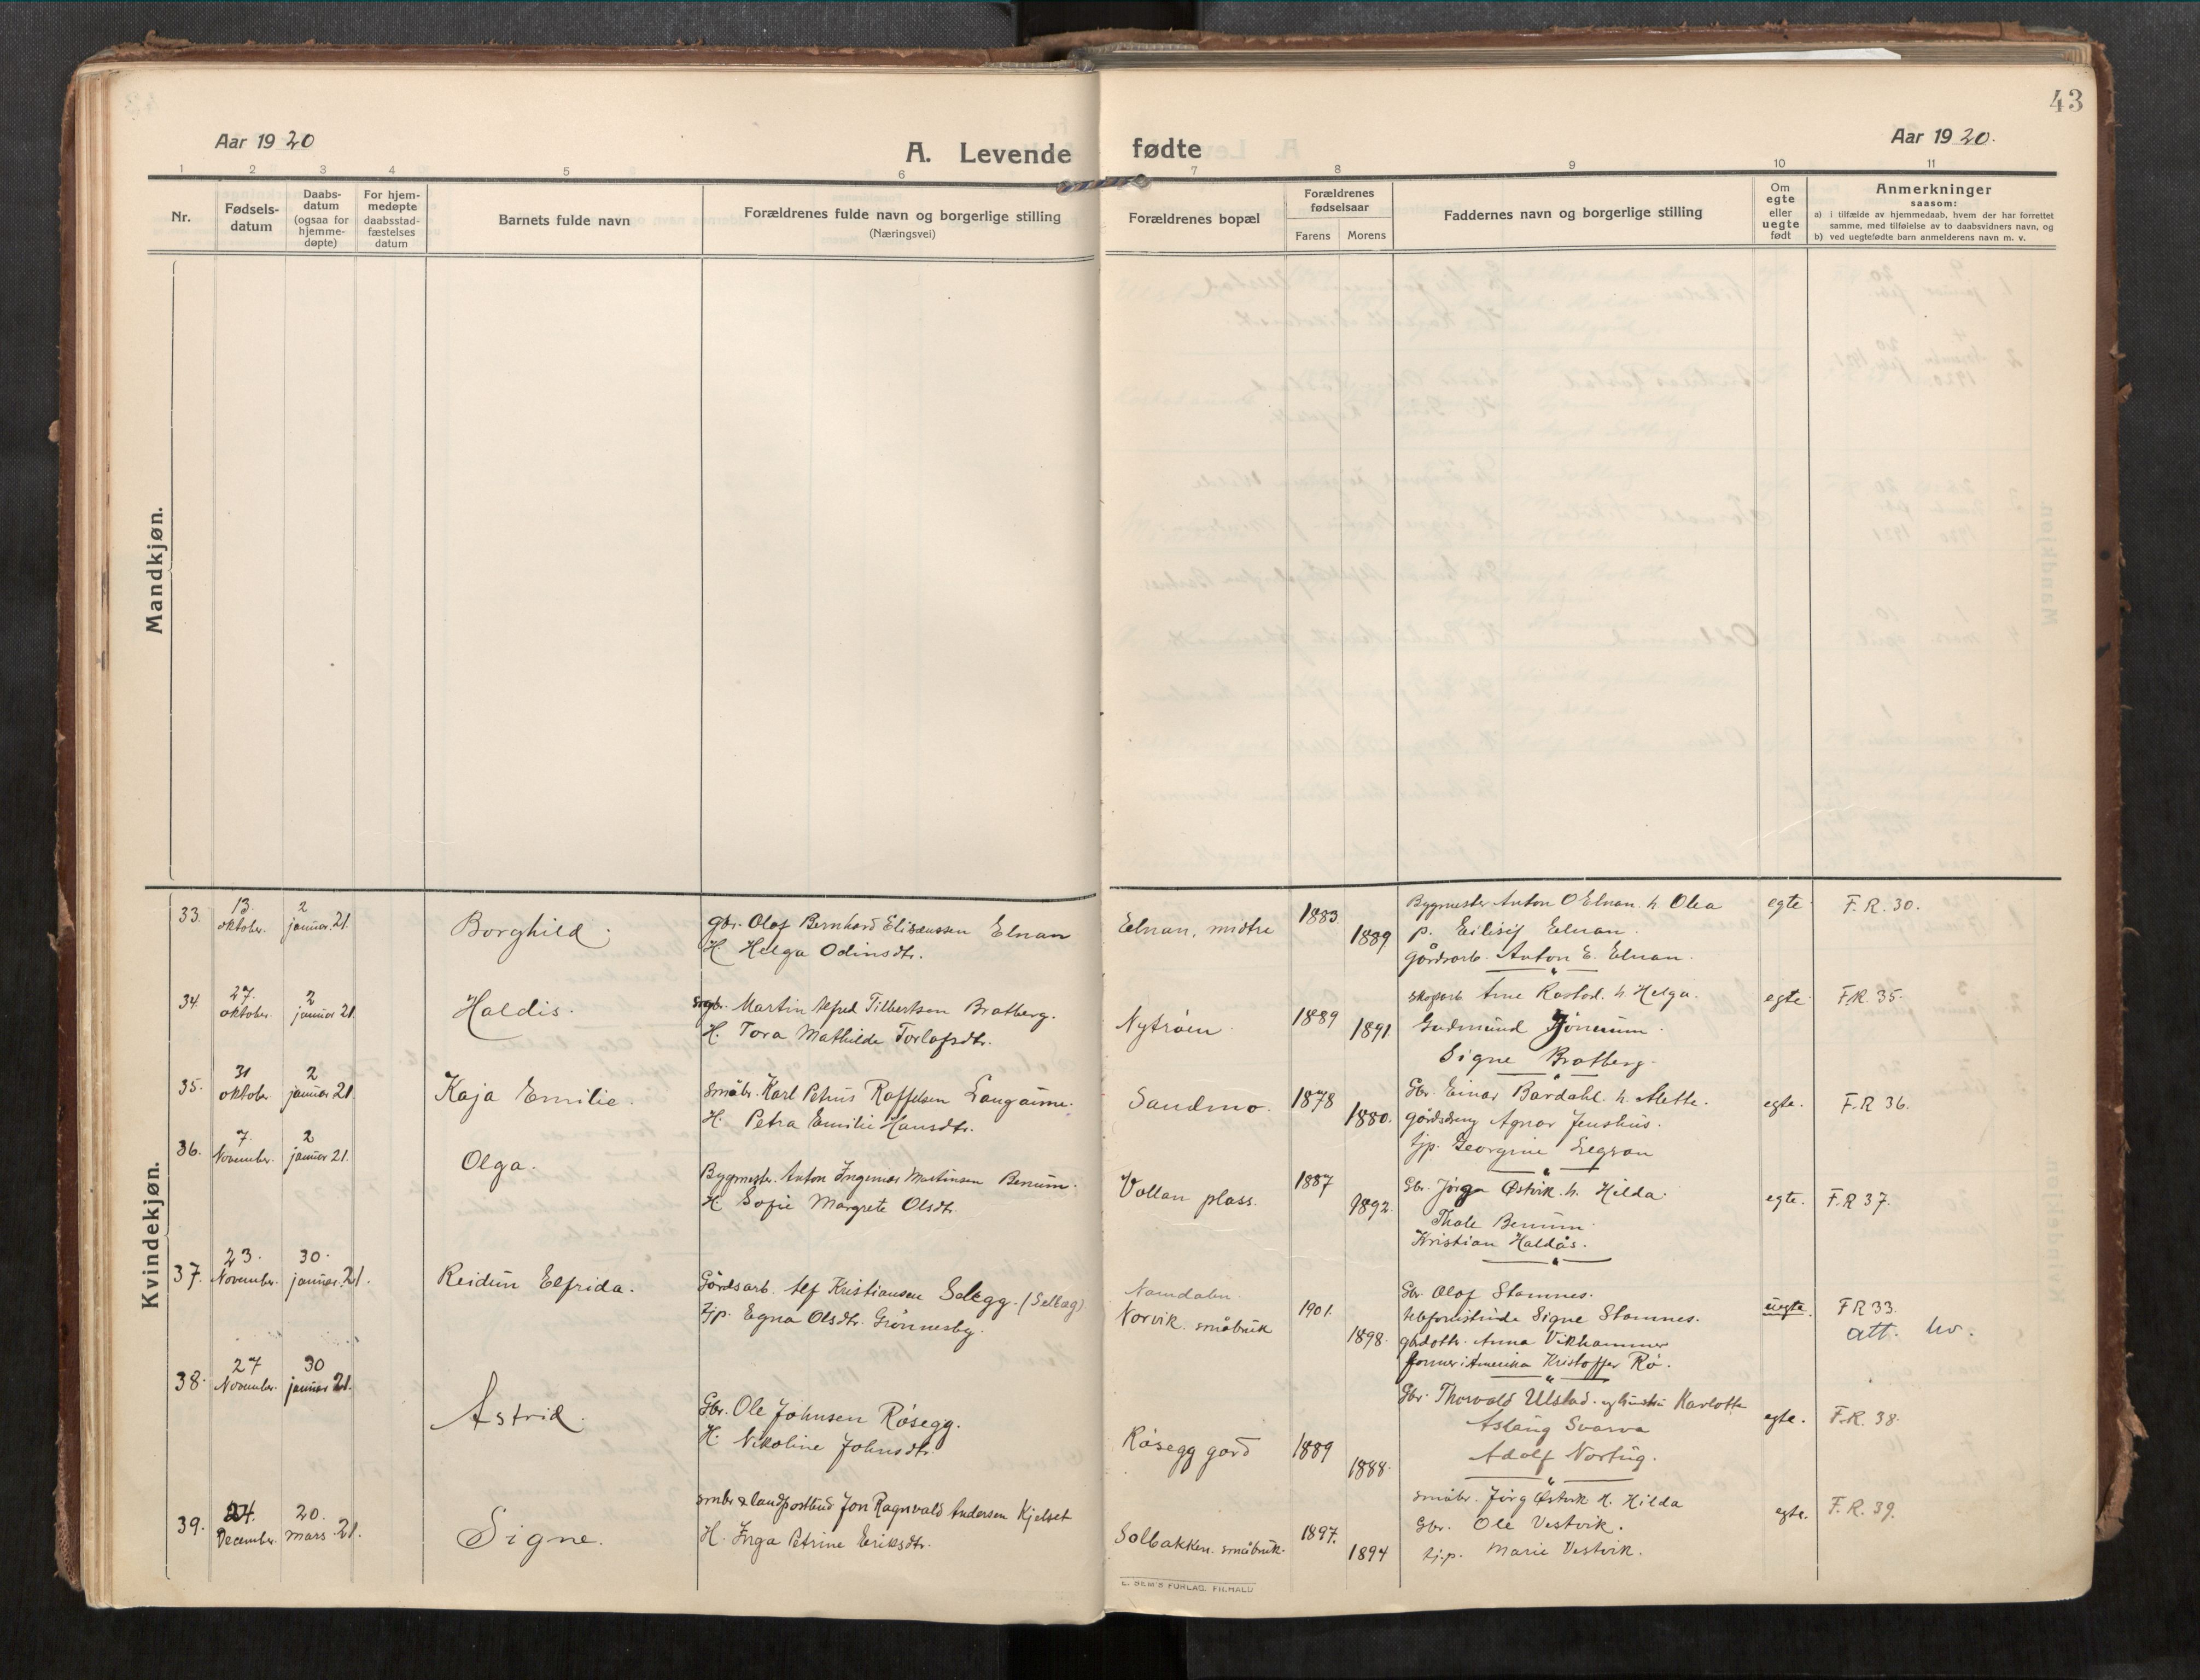 43
Aar 1920
A. Levende fødte
Aar 1920.
1 2 3 4 5 6 7 8 9 10 11
Nr.
Fødsels-
datum
Daabs-
datum
(ogsaa for
hjemme-
døpte)
For hjem-
medøpte
daabsstad-
fæstelses
datum
Barnets fulde navn
Forældrenes fulde navn og borgerlige stilling
(Næringsvei)
Forældrenes bopæl
Forældrenes
fødselsaar
Farens Morens
Faddernes navn og borgerlige stilling
Om
egte
eller
uegte
født
Anmerkninger
saasom:
a) i tilfælde av hjemmedaab, hvem der har forrettet
samme, med tilføielse av to daabsvidners navn, og
b) ved uegtefødte barn anmelderens navn m. v.
Mandkjøn.
Kvindekjøn.
33. 13. oktober. 2 januar 21.
Borghild.
gbr. Olaf Bernhard Elisæussen Elnan
H Helga Odinsdtr.
Elnan, midtre
1883. 1889
Bygmester Anton O Elnan. h Olea
p. Eilisif Elnan.
Gårdsarb. Anton E. Elnan.
egte
F. R. 30.
34. 27. oktober. 2 januar 21.
Haldis.
Martin Alfred Tilbertsen Bratberg.
H. Tora Mathilde Torlafsdtr.
Nytrøen.
1889 1891.
skogarb Arne Rostad. h. Helga.
Gudmund
Signe Bratberg.
egte
F.R. 35.
35. 31 oktober 2 januar 21.
Kaja Emilie.
småbr. Karl Petrus Roffelsen Langaune.
H. Petra Emilie Hansdtr.
Sandmo.
1878 1880.
Gbr. Einar Bårdahl. h. Alette.
gårdsdreng Agnar Jenshus.
tjp. Georgine
egte.
F.R 36.
36. 7. November. 2 januar 21.
Olga.
Bygmester. Anton Ingemar Martinsen Benum.
H Sofie Margrete Olsdtr.
Vollan plass.
1887 1892.
Gbr. Jørgen Østvik. h. Hilda.
Thale Benum.
Kristian Haldås.
egte.
F.R 37.
37. 23. November. 30. januar. 21.
Reidun Elfrida.
Gårdsarb. Alf Kristiansen Selegg. (Selbag)
Tjp. Egna Olsdtr. Grønnesby.
Namdalen.
Norvik. småbruk
1901. 1898.
Gbr. Olaf Stamnes.
telefonistinde Signe Stamnes.
gårddottr. Anna Vikhammer
farmer i Amerika Kristoffer Rø.
uegte.
F R 33.
att. hv.
38. 27 November. 30 januar 21.
Astrid.
Gbr. Ole Johnsen Røsegg.
H. Nikoline Johnsdtr.
Røsegg gård
1889 1888.
Gbr. Thorvald Ulstad. og hustru Karlotte
Aslaug Svarva
Adolf Nortug.
egte.
F.R. 38.
39. 24. December. 20. mars. 21.
Signe.
smbr & landpostbud Jon Ragnvald Andersen Kjelset
H. Inga Petrine Eriksdtr.
Solbakken. småbruk.
1897. 1894
småbr. Jørg Østvik H. Hilda
Gbr. Ole Vestvik.
tj.p. Marie Vestvik.
egte.
F. R. 39.
E. SEM'S FORLAG. FR.HALD